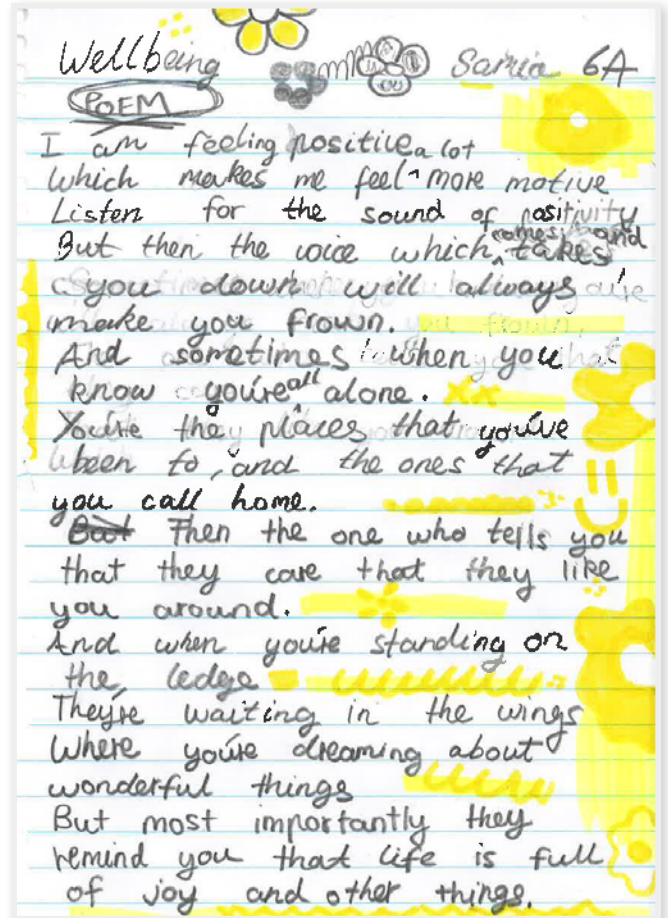 Wellbeing Samia 6A
POEM
I am feeling positive
which makes me feel ^ a lot more motive
Listen for the sound of positivity
But then the voice which ^ comes and takes
you down will always
make you frown.
And sometimes when you
know you're ^ all alone.
You're the places that you've
been to, and the ones that
you call home.
Then the one who tells you
that they care that they like
you around.
And when you're standing on
the ledge
They're waiting in the wings
Where you're dreaming about
wonderful things
But most importantly they
remind you that life is full
of joy and other things.